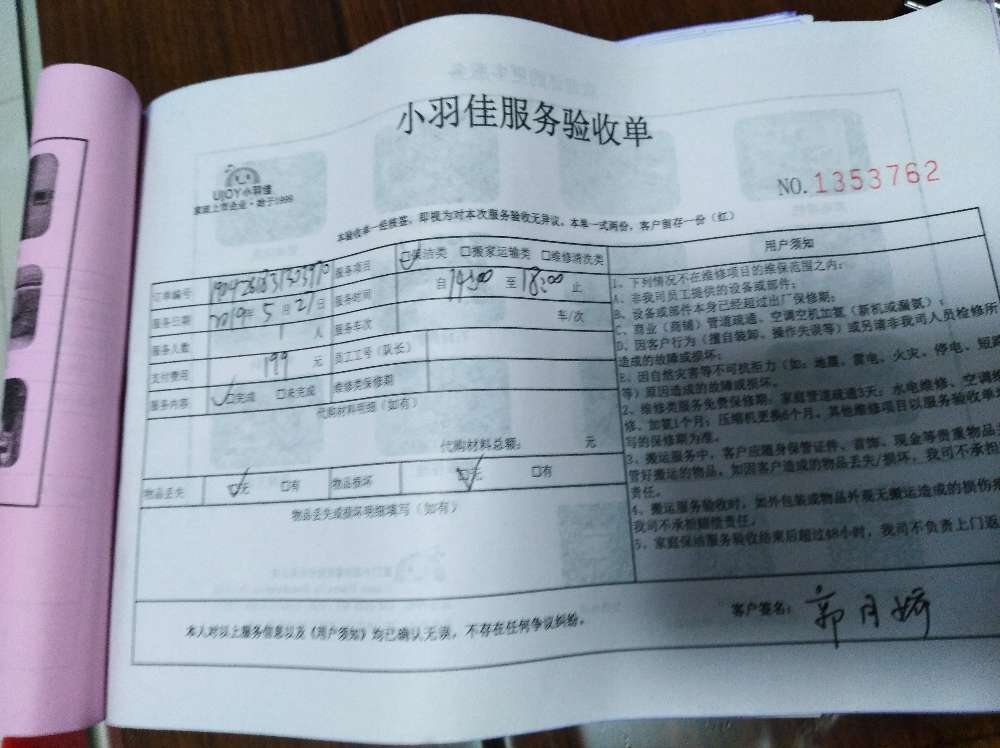 小羽佳服务验收单
UJOY小羽佳
家政上市企业·始于1999
NO.1353762
本验收单一经核签，即视为对本次服务验收无异议，本单一式两份，客户留存一份（红）
订单编号
服务项目 □保洁类 □搬家运输类 □维修清洗类
服务日期 2019年5月21日 服务时间 自14:00至18:00止
服务人数 1人 服务车次 车/次
支付费用 199元 员工工号（队长）
服务内容 □完成 □未完成 维修类保修期
代购材料明细（如有）
代购材料总额： 元
物品丢失 □无 □有 物品损坏 □无 □有
物品丢失或损坏明细填写（如有）
用户须知
1、下列情况不在维修项目的维保范围之内：
A、非我司员工提供的设备或部件；
B、设备或部件本身已经超过出厂保修期；
C、商业（商铺）管道疏通、空调空机加氨（新机或漏氨）；
D、因客户行为（擅自装卸、操作失误等）或另请非我司人员检修所
造成的故障或损坏；
E、因自然灾害等不可抗拒力（如：地震、雷电、火灾、停电、短路
等）原因造成的故障或损坏。
2、维修类服务免费保修期：家庭管道疏通3天；水电维修、空调维
修、加氨1个月；压缩机更换6个月。其他维修项目以服务验收单填
写的保修期为准。
3、搬运服务中，客户应随身保管证件、首饰、现金等贵重物品
管好搬运的物品，如因客户造成的物品丢失/损坏，我司不承担
责任。
4、搬运服务验收时，如外包装或物品外观无搬运造成的损伤
我司不承担赔偿责任。
5、家庭保洁服务验收结束后超过48小时，我司不负责上门返
本人对以上服务信息以及《用户须知》均已确认无误，不存在任何争议纠纷。
客户签名：郭月娇